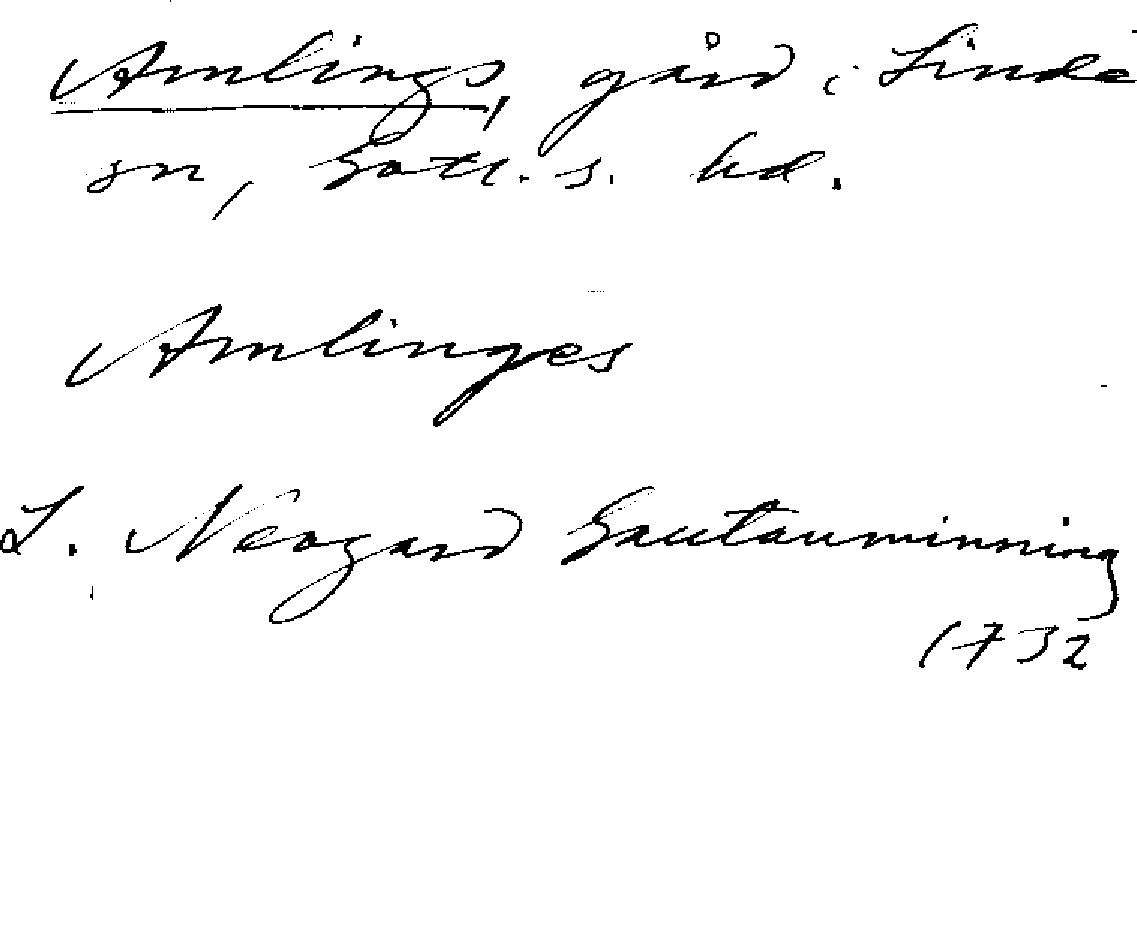 Amlings, gård i Linde
sn, Gotl. s. hd.
Amlinges
L. Neogard Gautauminning
1732